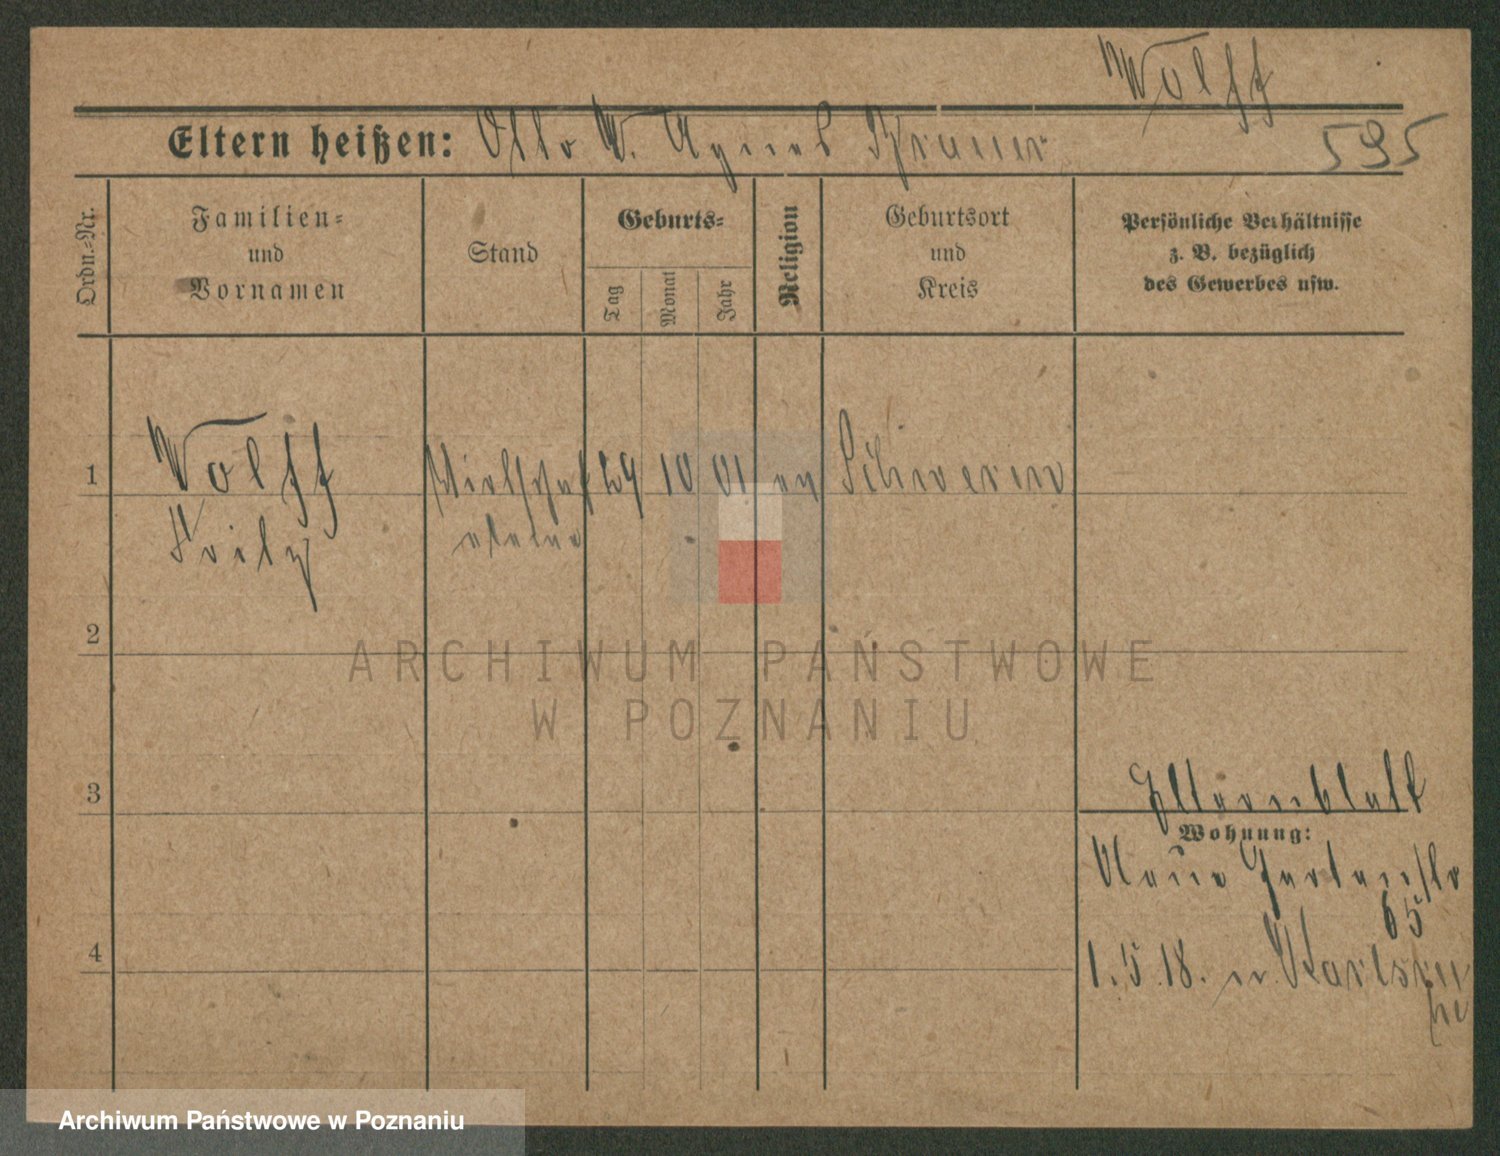 Wolff
Eltern heißen: Otto W. Agnes Kramer
595
Ordn.=Nr.
Familien=
und
Vornamen
Stand
Geburts=
Tag
Monat
Jahr
Religion
Geburtsort
und
Kreis
Persönliche Verhältnisse
z. B. bezüglich
des Gewerbes usw.
1 Wolff 29 10 01 ev Schwerin
Fritz
eleve
2
ARCHIWUM PAŃSTWOWE
W POZNANIU
3 Elternblatt
Wohnung:
Neue Gartenstr
65
4
1. 5. 18. n. Karlsru
he
Archiwum Państwowe w Poznaniu